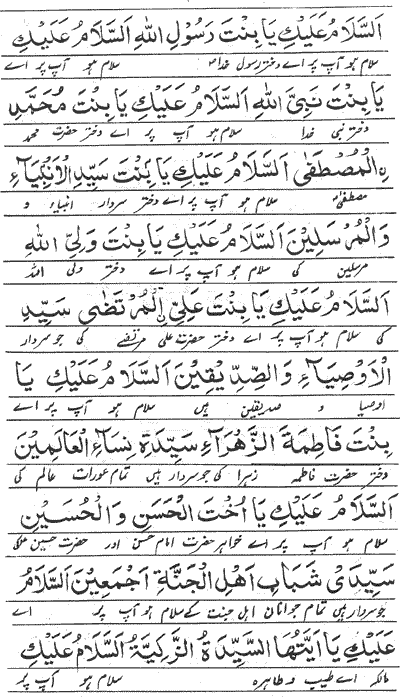 اَلسَّلَامُ عَلَيْكِ يَا بِنْتَ رَسُوْلِ اللهِ اَلسَّلَامُ عَلَيْكِ
سلام ہو آپ پر اے دختر رسول خدا سلام ہو آپ پر اے
يَا بِنْتَ نَبِيِّ اللهِ اَلسَّلَامُ عَلَيْكِ يَا بِنْتَ مُحَمَّدِ
دختر نبی خدا سلام ہو آپ پر اے دختر حضرت محمد
نِ الْمُصْطَفٰى اَلسَّلَامُ عَلَيْكِ يَا بِنْتَ سَيِّدِ الْاَنْبِيَآءِ
مصطفیٰ سلام ہو آپ پر اے دختر سردار انبیاء و
وَالْمُرْسَلِيْنَ اَلسَّلَامُ عَلَيْكِ يَا بِنْتَ وَلِيِّ اللهِ
مرسلین کی سلام ہو آپ پر اے دختر ولی اللہ
اَلسَّلَامُ عَلَيْكِ يَا بِنْتَ عَلِيِّ نِ الْمُرْتَضٰى سَيِّدِ
کی سلام ہو آپ پر اے دختر حضرت علی مرتضےٰ کی جو سردار
الْاَوْصِيَآءِ وَالصِّدِّيْقِيْنَ اَلسَّلَامُ عَلَيْكِ يَا
اوصیا و صدیقین ہیں سلام ہو آپ پر اے
بِنْتَ فَاطِمَةَ الزَّهْرَآءِ سَيِّدَةِ نِسَآءِ الْعَالَمِيْنَ
دختر حضرت فاطمہ زہرا کی جو سردار ہیں تمام عورات عالم کی
اَلسَّلَامُ عَلَيْكِ يَا اُخْتَ الْحَسَنِ وَالْحُسَيْنِ
سلام ہو آپ پر اے خواہر حضرت امام حسن اور حضرت حسین کی
سَيِّدَيْ شَبَابِ اَهْلِ الْجَنَّةِ اَجْمَعِيْنَ اَلسَّلَامُ
جو سردار ہیں تمام جوانان اہل جنت کے سلام ہو آپ پر اے
عَلَيْكِ يَا اَيَّتُهَا السَّيِّدَةُ الزَّكِيَّةُ اَلسَّلَامُ عَلَيْكِ
ملکہ اے طیب و طاہرہ سلام ہو آپ پر